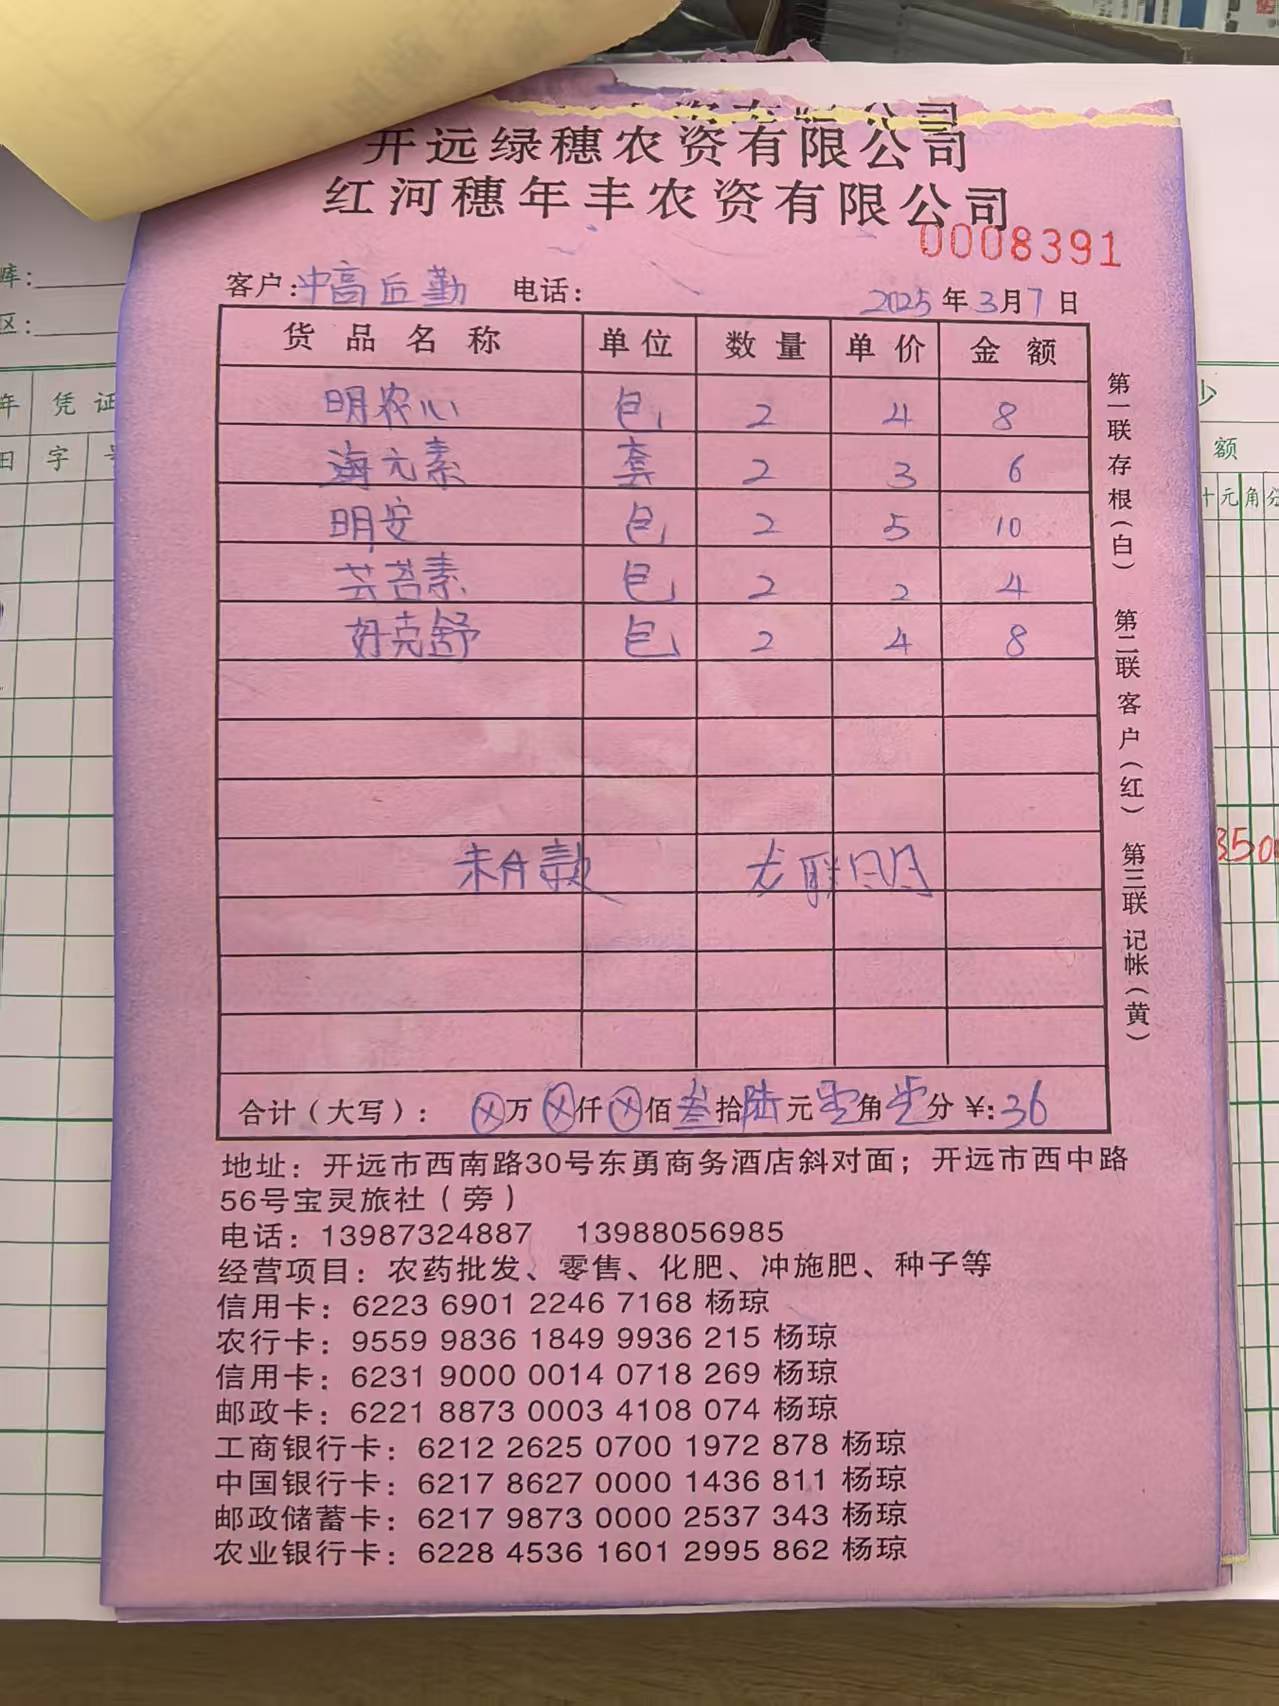 开远绿穗农资有限公司
红河穗年丰农资有限公司
0008391
客户:中高后勤 电话: 2025年3月7日
货品名称 单位 数量 单价 金额
明农心 包 2 4 8
海元素 套 2 3 6
明安 包 2 5 10
芸苔素 包 2 2 4
好克舒 包 2 4 8
未付款 龙联明
合计(大写): ⓧ万ⓧ仟ⓧ佰叁拾陆元零角零分¥:36
第一联存根(白) 第二联客户(红) 第三联记帐(黄)
地址:开远市西南路30号东勇商务酒店斜对面;开远市西中路
56号宝灵旅社(旁)
电话:13987324887 13988056985
经营项目:农药批发、零售、化肥、冲施肥、种子等
信用卡:6223 6901 2246 7168 杨琼
农行卡:9559 9836 1849 9936 215 杨琼
信用卡:6231 9000 0014 0718 269 杨琼
邮政卡:6221 8873 0003 4108 074 杨琼
工商银行卡:6212 2625 0700 1972 878 杨琼
中国银行卡:6217 8627 0000 1436 811 杨琼
邮政储蓄卡:6217 9873 0000 2537 343 杨琼
农业银行卡:6228 4536 1601 2995 862 杨琼
库:
区:
年 凭证
字 号
额
十元角分
350